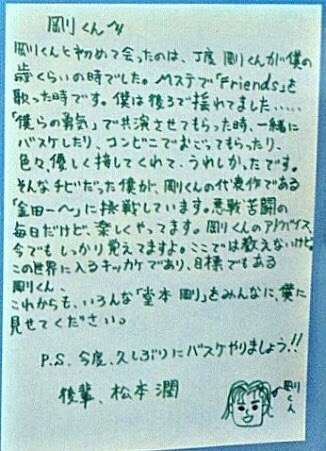 剛くんへ
剛くんと初めて会ったのは、丁度 剛くんが僕の
歳くらいの時でした。Mステで「Friends」を
歌った時です。僕は後ろで揺れてました.....
「僕らの勇気」で共演させてもらった時、一緒に
バスケしたり、コンビニでおごってもらったり、
色々、優しく接してくれて、うれしかったです。
そんなチビだった僕が、剛くんの代表作である
「金田一〜」に挑戦しています。悪戦苦闘の
毎日だけど、楽しくやってます。剛くんのアドバイス、
今でもしっかり覚えてますよ。ここでは教えないけど。
この世界に入るキッカケであり、目標でもある
剛くん、
これからも、いろんな「堂本 剛」をみんなに、僕に
見せてください。
P.S. 今度、久しぶりにバスケやりましょう!!
後輩、松本潤
剛くん